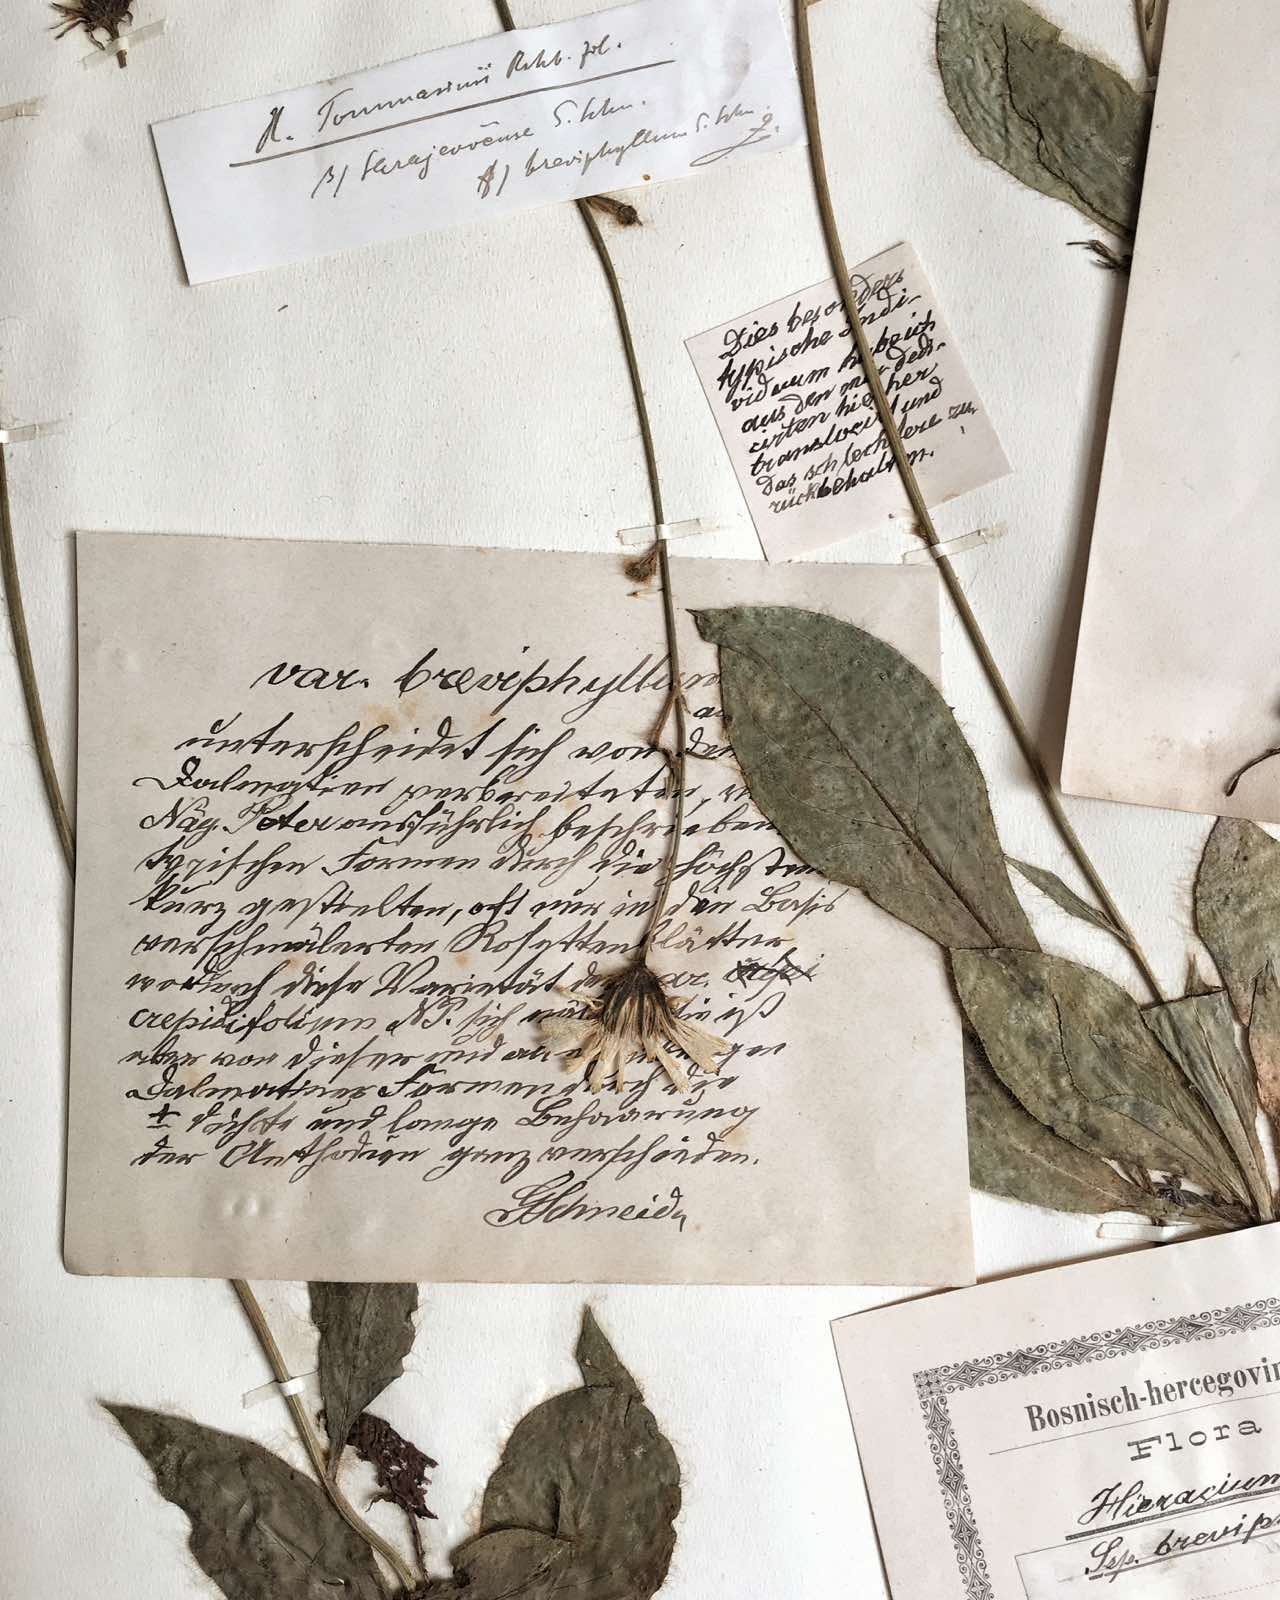 H. Tommasinii Rchb. fil.
β) Sarajevoënse S. Schn.
breviphyllum S. Schn.
Dies besonders
typische Indi-
viduum habe ich
aus den mir dedi-
cirten hierher
translocirt und
das schlechtere zu
rückbehalten.
var. breviphyllum
unterscheidet sich von den
Dalmatien verbreiteten,
Näg. Peter ausführlich beschrieben
typischen Formen durch die höchstens
kurz gestielten, oft nur in die Basis
verschmälerten Rosettenblätter
wodurch diese Varietät der var.
crepidifolium NP. sich ist
aber von dieser und
Dalmatiner Formen durch die
± dichte und lange Behaarung
der Anthodien ganz verschieden.
GSchneider
Bosnisch-hercegovin
Flora
Hieracium
Ssp. brevip